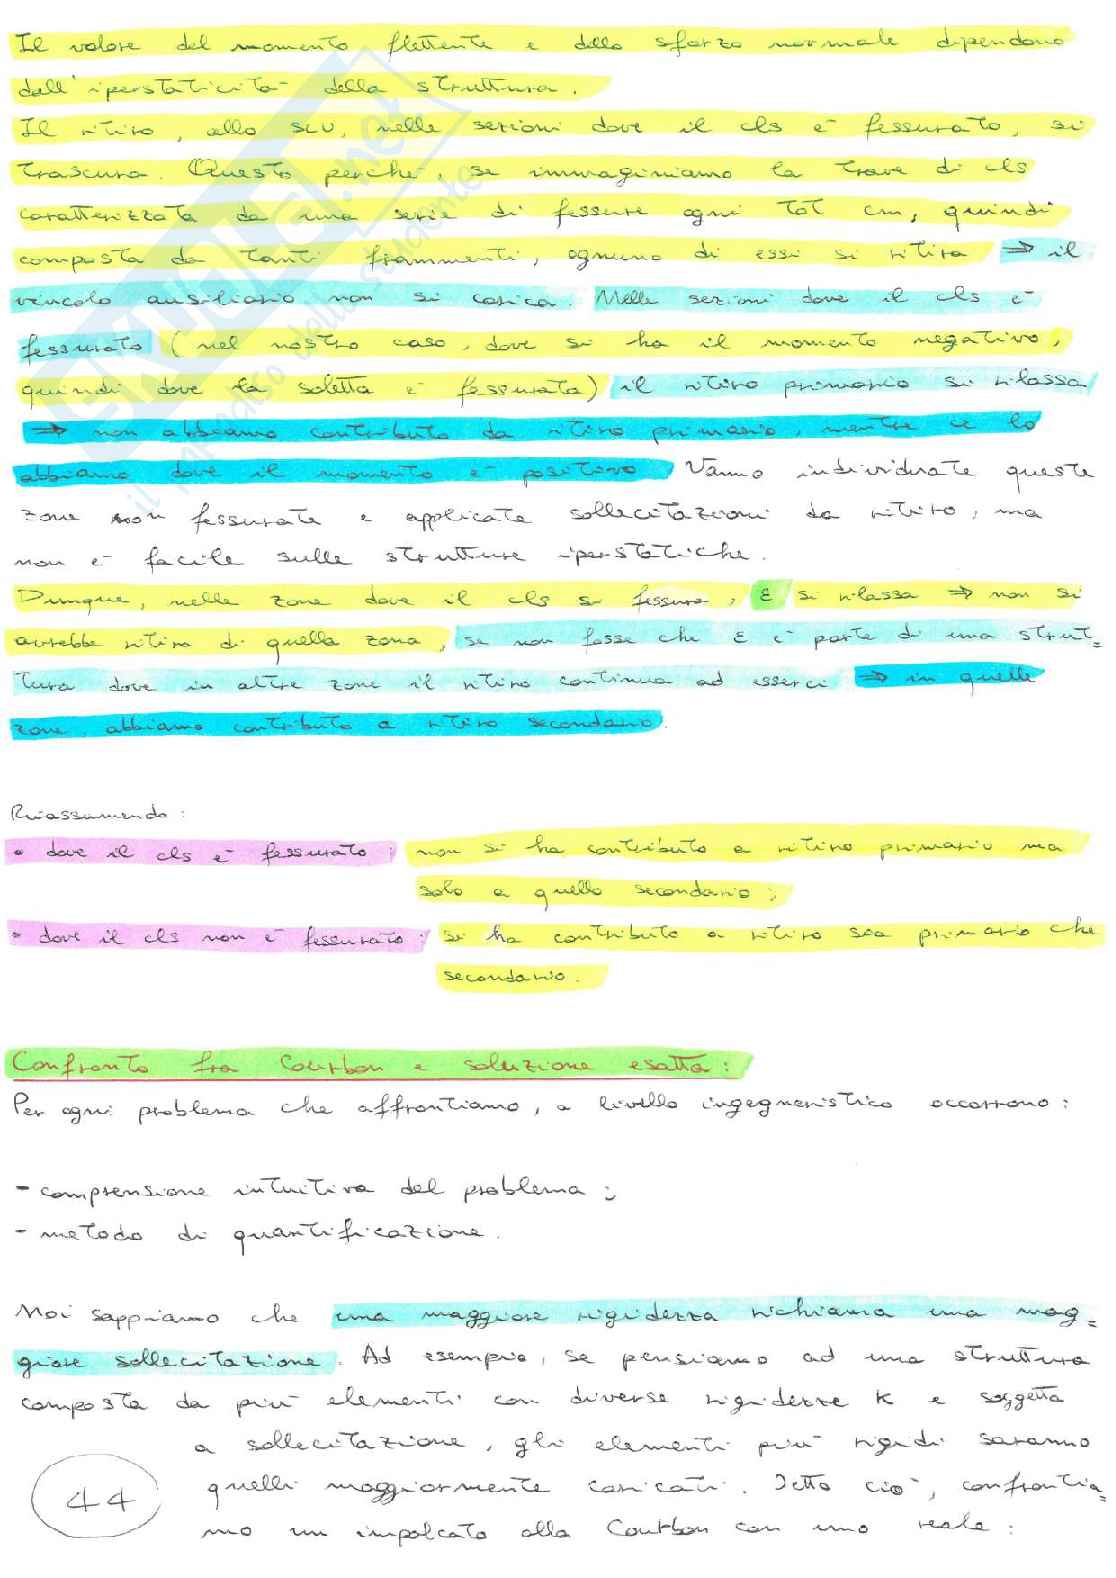 Il valore del momento flettente e dello sforzo normale dipendono
dall'iperstaticità della struttura.
Il ritiro, allo SLU, nelle sezioni dove il cls è fessurato, si
trascura. Questo perché, se immaginiamo la trave di cls
caratterizzata da una serie di fessure ogni tot cm, quindi
composta da tanti frammenti, ognuno di essi si ritira ⇒ il
vincolo ausiliario non si carica. Nelle sezioni dove il cls è
fessurato (nel nostro caso, dove si ha il momento negativo,
quindi dove la soletta è fessurata) il ritiro primario si rilassa
⇒ non abbiamo contributo da ritiro primario, mentre ce lo
abbiamo dove il momento è positivo. Vanno individuate queste
zone non fessurate e applicate sollecitazioni da ritiro, ma
non è facile sulle strutture iperstatiche.
Dunque, nelle zone dove il cls si fessura, ε si rilassa ⇒ non si
avrebbe ritiro di quella zona, se non fosse che ε è parte di una strut=
tura dove in altre zone il ritiro continua ad esserci ⇒ in quelle
zone abbiamo contributo a ritiro secondario.
Riassumendo:
• dove il cls è fessurato: non si ha contributo a ritiro primario ma
solo a quello secondario;
• dove il cls non è fessurato: si ha contributo a ritiro sia primario che
secondario.
Confronto fra Courbon e soluzione esatta:
Per ogni problema che affrontiamo, a livello ingegneristico occorrono:
- comprensione intuitiva del problema;
- metodo di quantificazione.
Noi sappiamo che una maggiore rigidezza richiama una mag=
giore sollecitazione. Ad esempio, se pensiamo ad una struttura
composta da più elementi con diverse rigidezze K e soggetta
a sollecitazione, gli elementi più rigidi saranno
quelli maggiormente caricati. Detto ciò, confrontia=
mo un impalcato alla Courbon con uno reale:
44